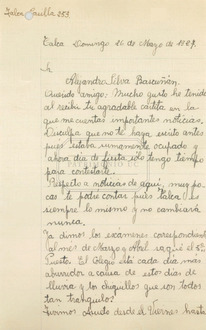 Talca
Talca Domingo 16 de Mayo de 1927.
Sr.
Alejandro Silva Bascuñán,
Querido amigo: Mucho gusto he tenido
al recibir tu agradable cartita en la
que me cuentas importantes noticias.
Disculpa que no te haya escrito antes
pues estaba sumamente ocupado y
ahora día de fiesta solo tengo tiempo
para contestarte.
Respecto a noticias de aquí, muy po-
cas te podré contar pues Talca es
siempre lo mismo y no cambiará
nunca.
Ya dimos los exámenes correspondientes
al mes de Marzo y Abril, saqué el 5º
Puesto. El Colegio está cada día más
aburridor a causa de estos días de
lluvia y los chiquillos que son todos
tan tranquilos?
Tuvimos asueto desde el Viernes hasta